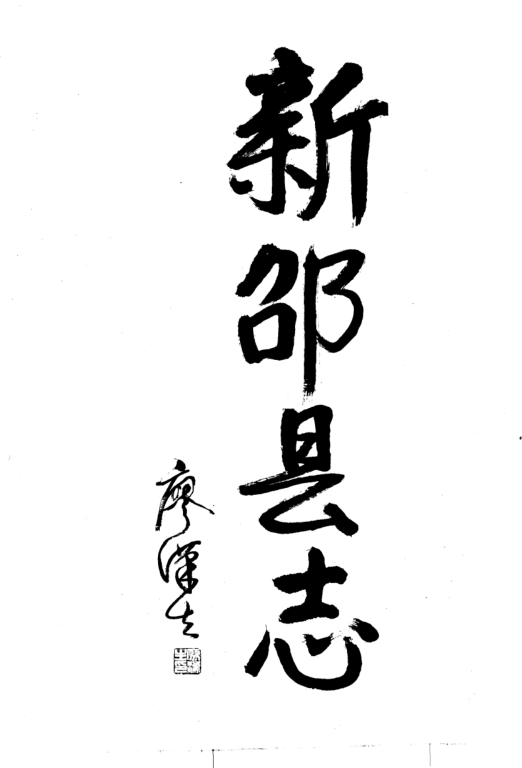 新邵县志
廖漢生